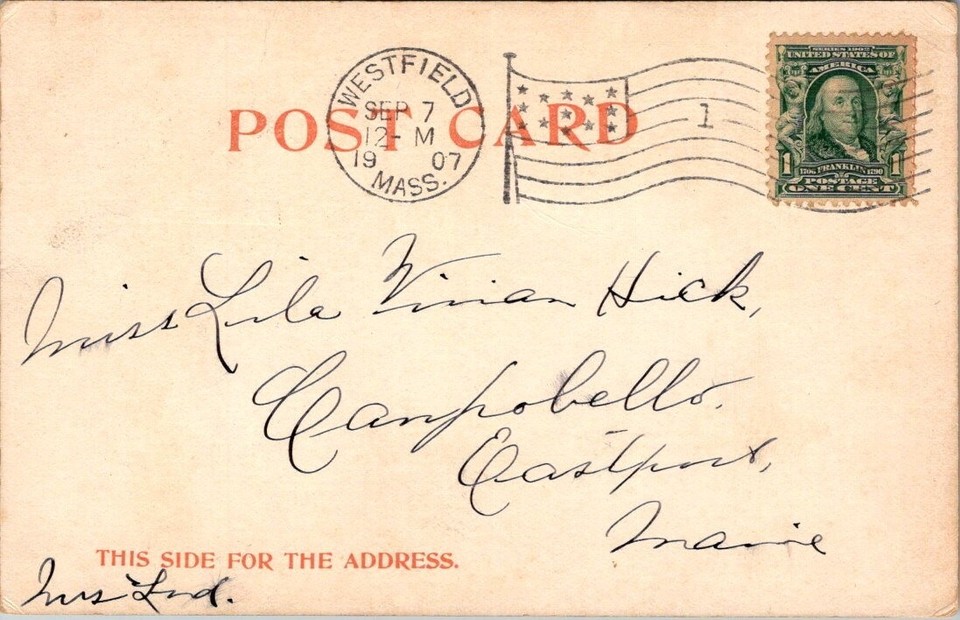 POST CARD
WESTFIELD
SEP 7
12-M
1907
MASS.
1
SERIES 1902
UNITED STATES OF
AMERICA
1 1
1706 FRANKLIN 1790
POSTAGE
ONE CENT
Miss Lila Vivian Hick,
Campobello.
Eastport,
Maine
THIS SIDE FOR THE ADDRESS.